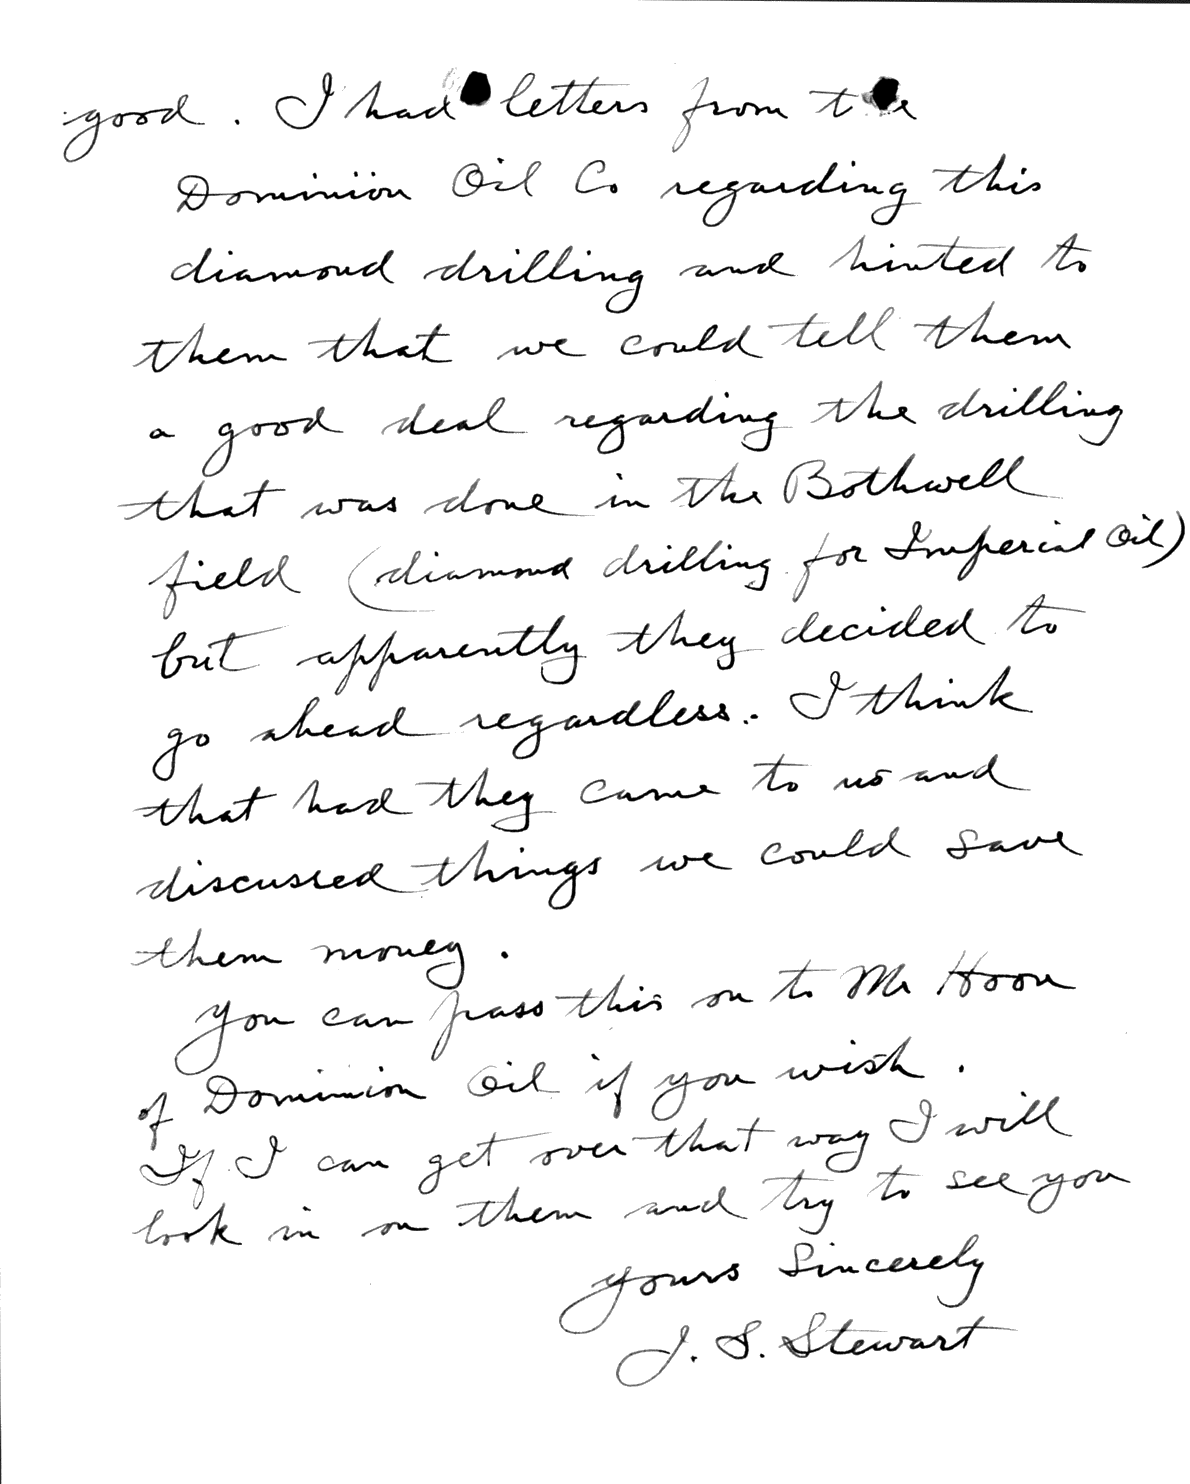 good. I had letters from the
Dominion Oil Co regarding this
diamond drilling and hinted to
them that we could tell them
a good deal regarding the drilling
that was done in the Bothwell
field (diamond drilling for Imperial Oil)
but apparently they decided to
go ahead regardless. I think
that had they came to us and
discussed things we could save
them money.
You can pass this on to Mr Hoon
of Dominion Oil if you wish.
If I can get over that way I will
look in on them and try to see you
yours Sincerely
J. S. Stewart